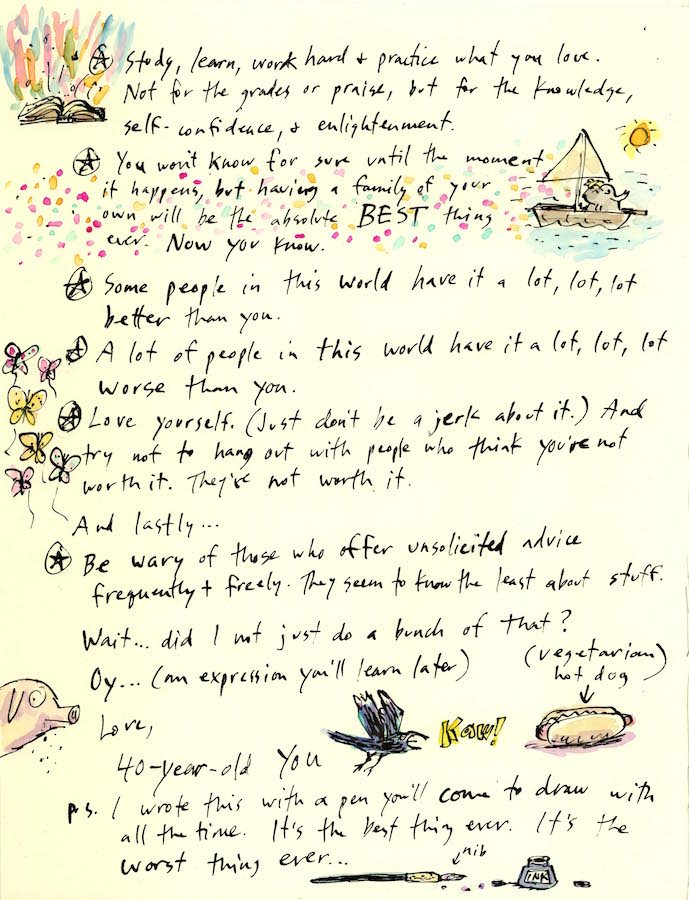 Study, learn, work hard + practice what you love.
Not for the grades or praise, but for the knowledge,
self-confidence, + enlightenment.
You won't know for sure until the moment
it happens, but having a family of your
own will be the absolute BEST thing
ever. Now you know.
Some people in this world have it a lot, lot, lot
better than you.
A lot of people in this world have it a lot, lot, lot
worse than you.
Love yourself. (Just don't be a jerk about it.) And
try not to hang out with people who think you're not
worth it. They're not worth it.
And lastly...
Be wary of those who offer unsolicited advice
frequently + freely. They seem to know the least about stuff.
Wait... did I not just do a bunch of that?
Oy... (an expression you'll learn later)
(vegetarian)
hot dog
Love,
Kaw!
40-year-old You
p.s. I wrote this with a pen you'll come to draw with
all the time. It's the best thing ever. It's the
worst thing ever...
nib
INK